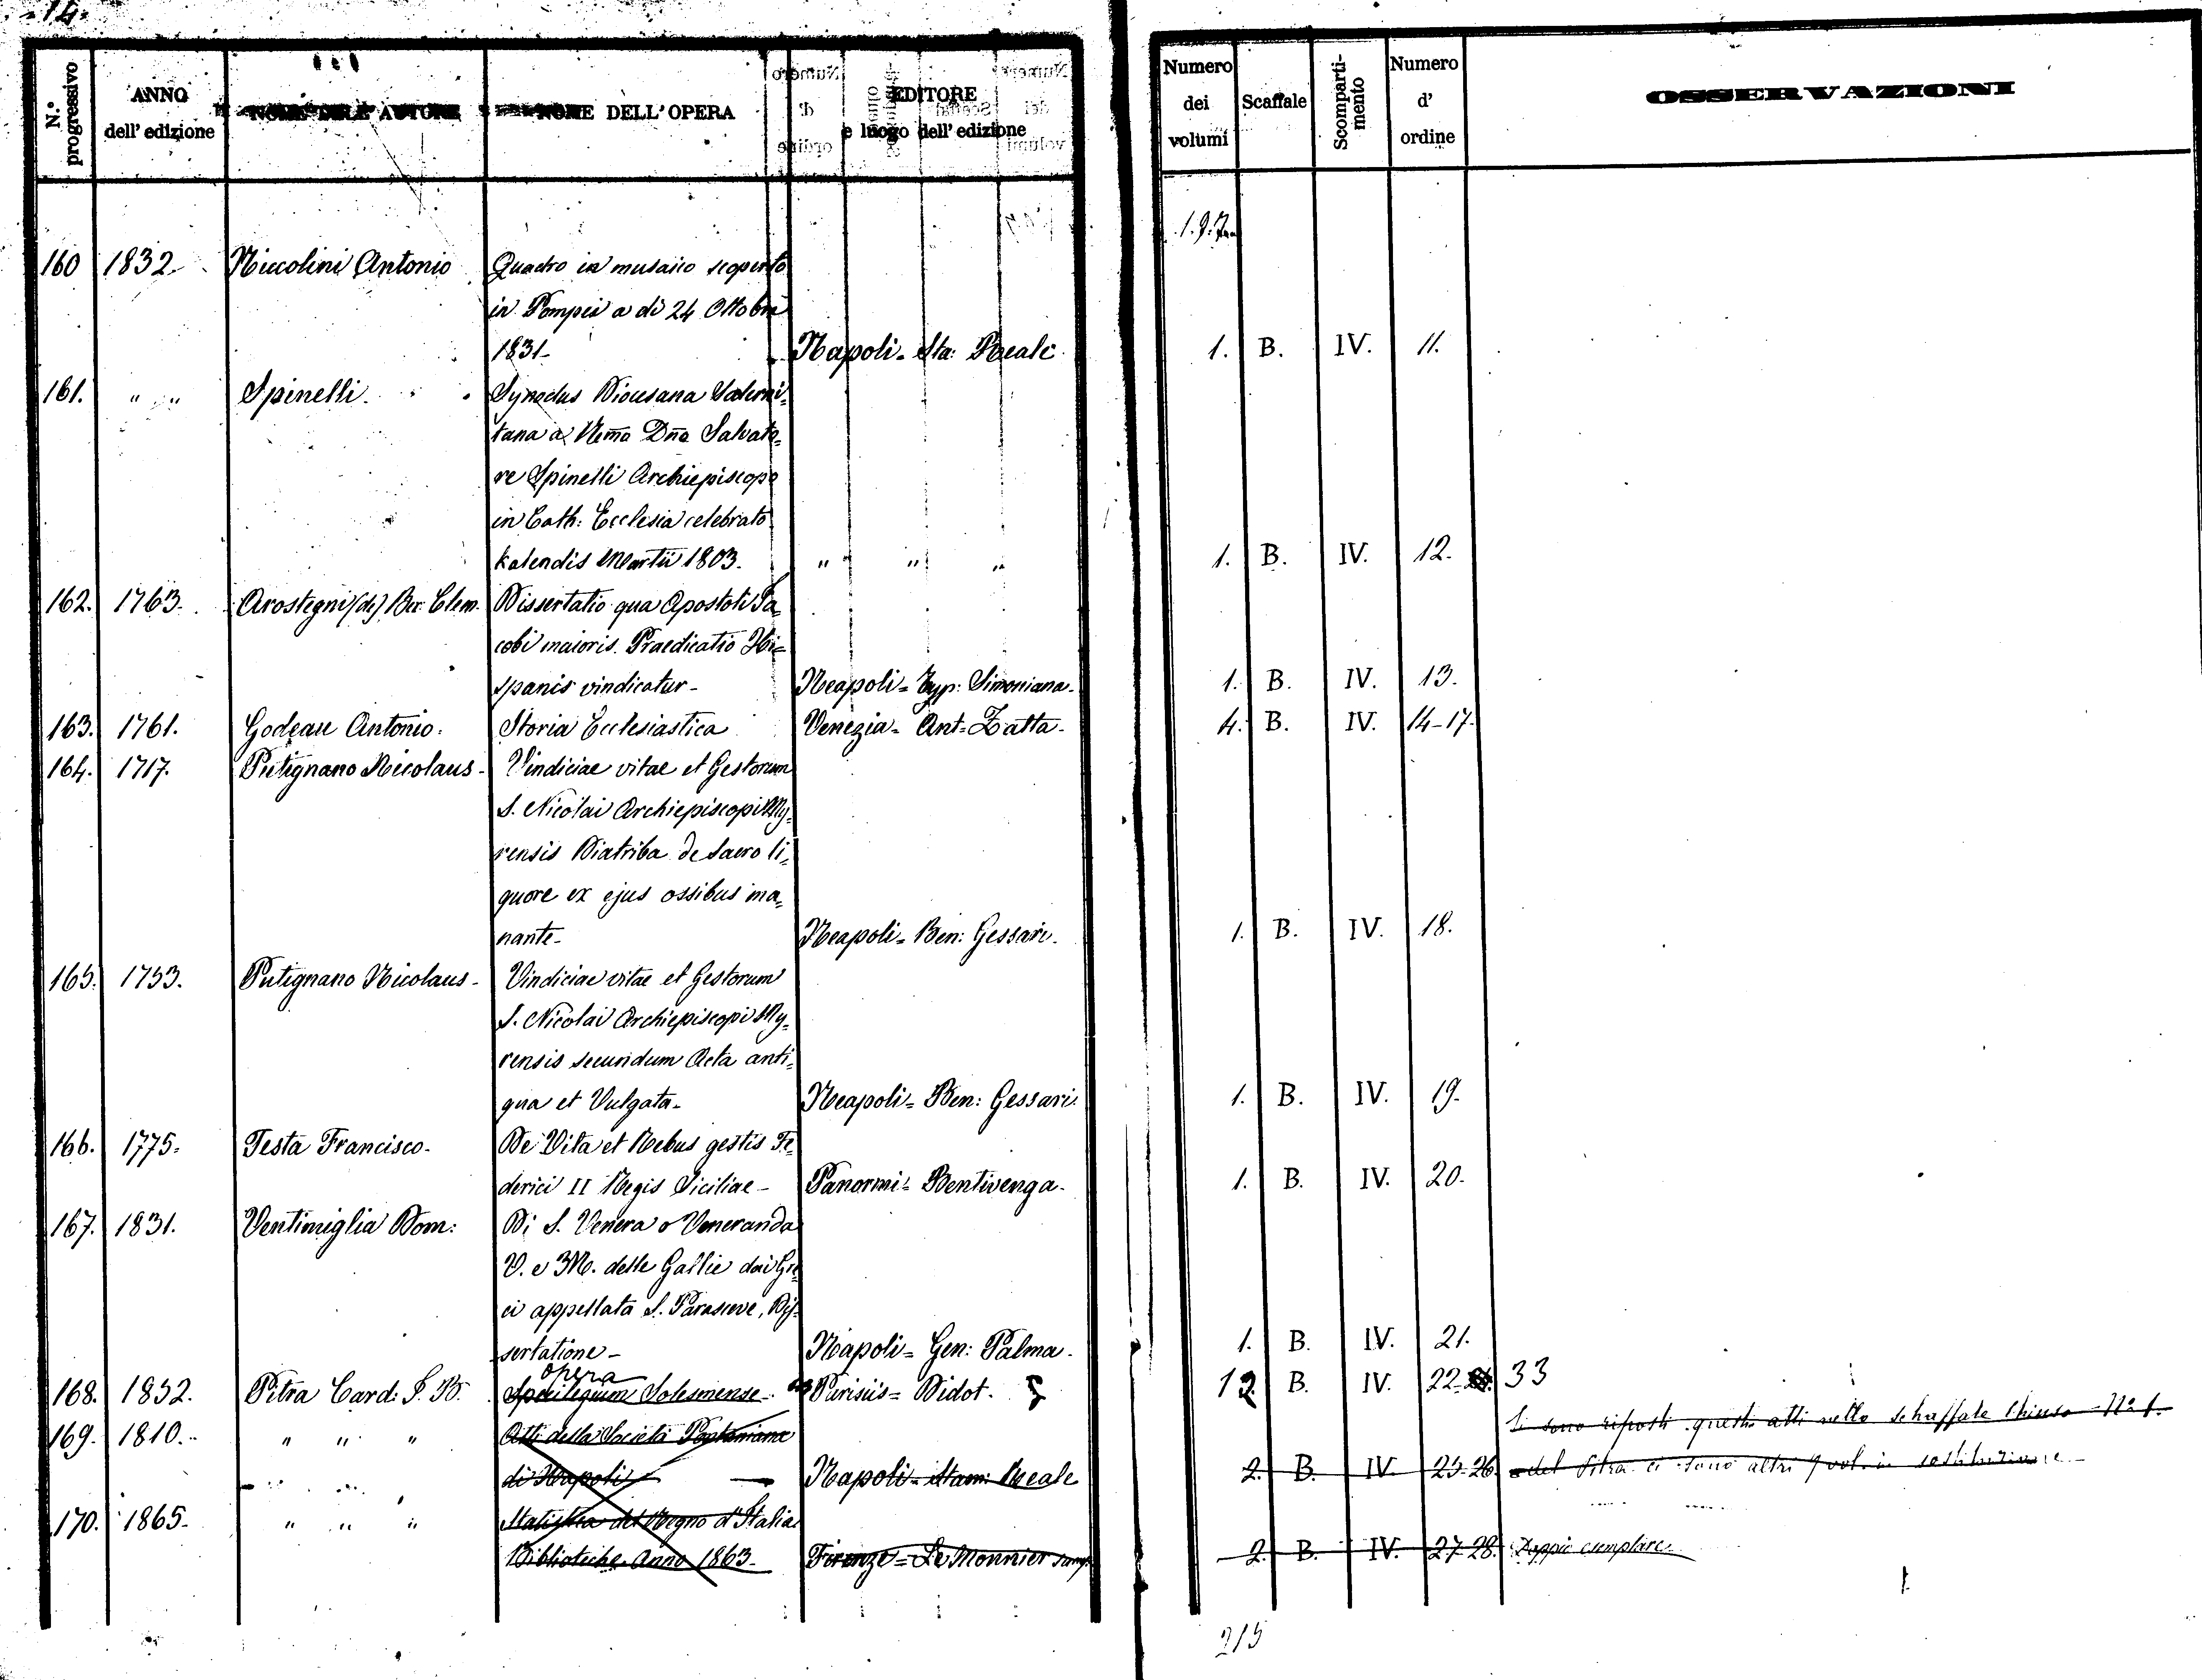 14.
N.° progressivo
ANNO dell' edizione
NOME DELL' AUTORE
NOME DELL' OPERA
EDITORE e luogo dell' edizione
Numero dei volumi
Scaffale
Scomparti-mento
Numero d' ordine
OSSERVAZIONI
160 1832. Niccolini Antonio Quadro in musaico scoperto
in Pompei a dì 24 Ottobre
1831- Napoli= Sta: Reale 1. B. IV. 11.
161. " " Spinelli. Synodus Diocesana Salerni=
tana a Rem̃o Dño Salvato=
re Spinelli Archiepiscopo
in Cath: Ecclesia celebrato
kalendis Martii 1803. " " " 1. B. IV. 12.
162. 1763. Arostegni (de) Ber. Clem. Dissertatio qua Apostoli Ja=
cobi maioris Praedicatio Hi=
spanis vindicatur- Neapoli= Typ: Simoniana- 1. B. IV. 13.
163. 1761. Godeau Antonio. Storia Ecclesiastica Venezia= Ant= Zatta- 4. B. IV. 14-17.
164. 1717. Putignano Nicolaus- Vindiciae vitae et Gestorum
S. Nicolai Archiepiscopi My=
rensis Diatriba de sacro li=
quore ex ejus ossibus ma=
nante- Neapoli= Ben: Gessari. 1. B. IV. 18.
165. 1753. Putignano Nicolaus- Vindiciae vitae et Gestorum
S. Nicolai Archiepiscopi My=
rensis secundum Acta anti=
qua et Vulgata- Neapoli= Ben: Gessari. 1. B. IV. 19.
166. 1775. Testa Francisco- De Vita et Rebus gestis Fe=
derici II Regis Siciliae- Panormi= Bentivenga- 1. B. IV. 20.
167. 1831. Ventimiglia Dom: Di S. Venera o Veneranda
V. e M. delle Gallie dai Gre=
ci appellata S. Parasceve, Dis=
sertatione- Napoli= Gen: Palma- 1. B. IV. 21.
opera
168. 1852. Pitra Card: J. B. Spicilegium Solesmense- Parisiis= Didot. 12. B. IV. 22- 33
Si sono riposti questi atti nello schaffale chiuso N° 1.
169. 1810. " " " Atti della Società Pontaniana
di Napoli- Napoli= Stam: Reale 2. B. IV. 25-26. del Pitra ci sono altri 9 vol. in sostituzione-
170. 1865. " " " Statistica del Regno d'Italia.
Biblioteche Anno 1863- Firenze= Le Monnier 2. B. IV. 27-28. Doppio esemplare
215